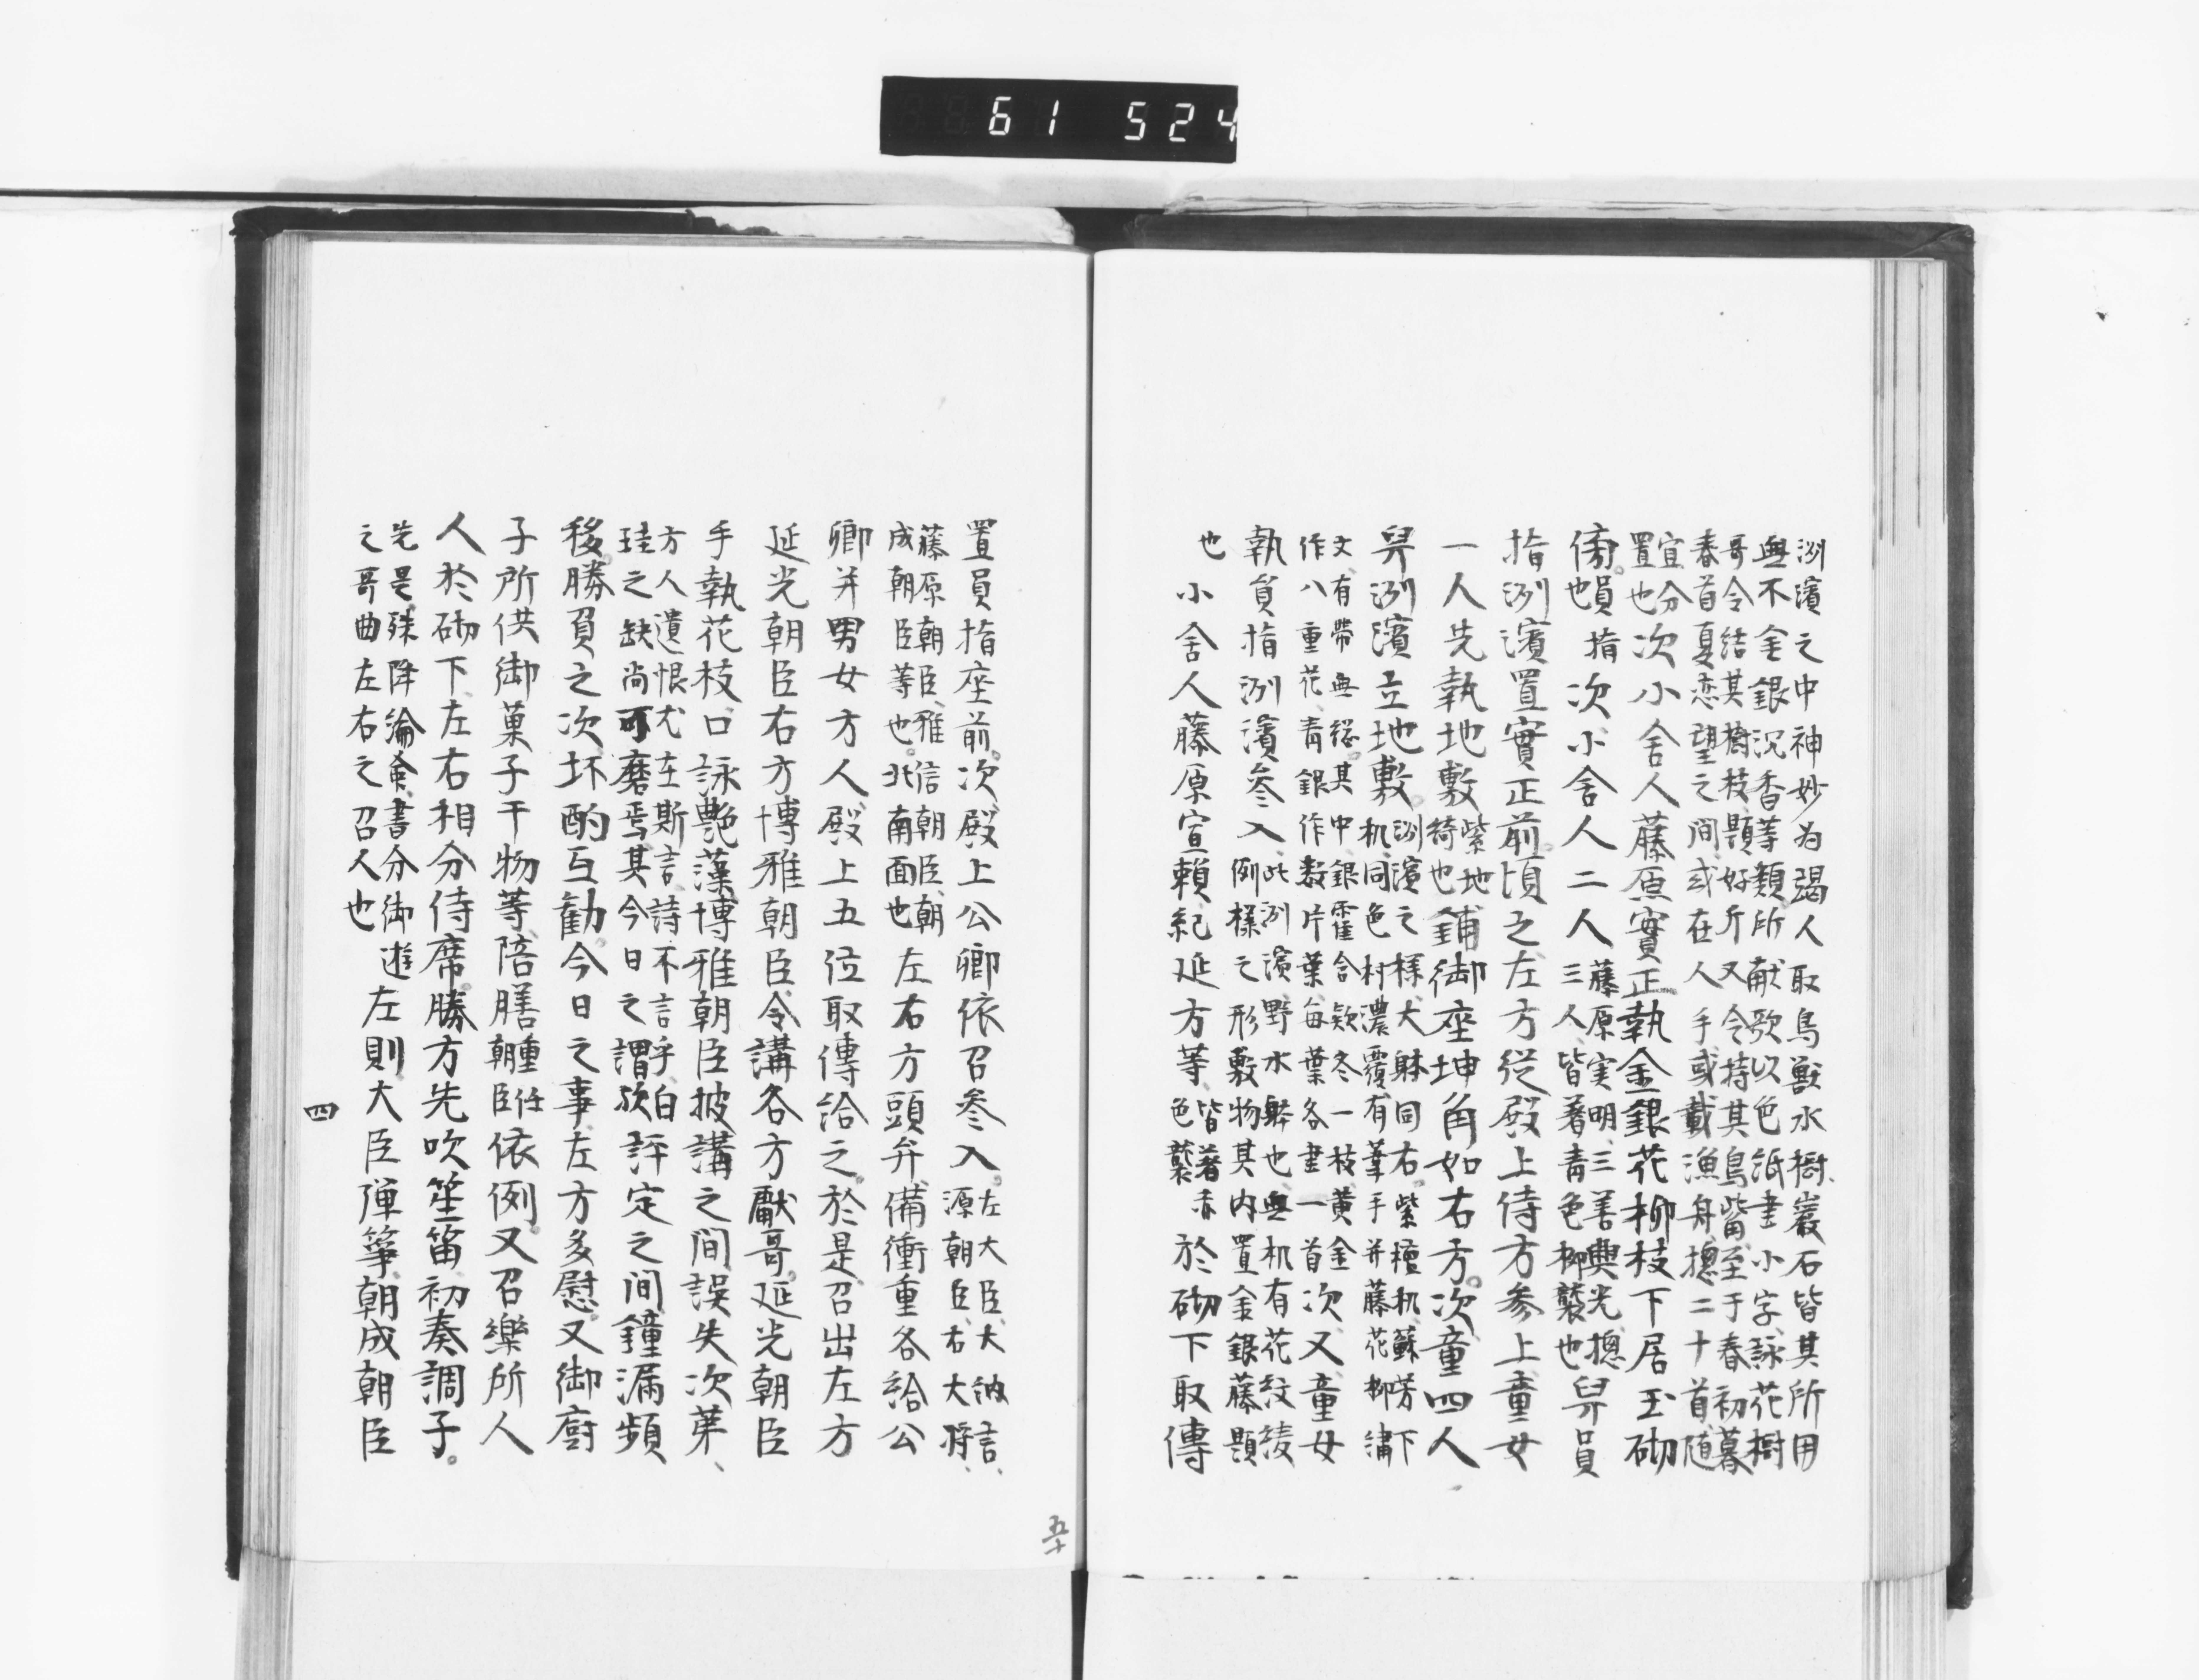 61 524
洲濱之中神妙為遏人取鳥獣水樹、巖石皆其所用
無不金銀沉香等類所献歌以色紙書小字、詠花樹
哥令結其樹枝、題好斤又令持其鳥觜、至于春初暮
春首夏恋望之間、或在人手、或載漁舟、揔二十首、随
宜分
置也次小舎人藤原實正執金銀花柳枝下居玉砌
傍。員
也指次小舎人二人藤原実明、三善興光、揔
三人、皆著青色柳襲也舁員
指洲濱置實正前。頃之左方従殿上侍方参上童女
一人先執地敷紫地
綺也鋪御座坤角如右方。次童四人
舁洲濱立地敷。洲濱之様大躰同右。紫檀机、蘇芳下
机、同色村濃覆、有葦手并藤花柳繍
文、有帯無總。其中銀雚含欵冬一枝、黄金
作八重花、青銀作数片葉、毎葉各書一首次又童女
執員指洲濱参入此洲濱野水躰也、無机有花紋綾
例様之形敷物其内置金銀藤題
也小舎人藤原宣頼、紀延方等、皆著赤
色襲於砌下取傳
置員指座前。次殿上公卿依召参入。左大臣、大納言、
源朝臣、右大将、
藤原朝臣、雅信朝臣、朝
成朝臣等也。北南面也左右方頭弁備衝重各給公
卿并男女方人、殿上五位取傳給之。於是召出左方
延光朝臣右方博雅朝臣令講各方獻哥。延光朝臣
手執花枝、口詠艶藻博雅朝臣披講之間誤失次第、
方人遺恨尤在斯言、詩不言乎、白
珪之缺尚可磨焉、其今日之謂歟評定之間鐘漏頻
移。勝負之次坏酌互勧。今日之事、左方多慰。又御廚
子所供御菓子干物等、陪膳重任
朝臣依例。又召樂所人
人於砌下、左右相分侍席。勝方先吹笙笛、初奏調子。
先是、殊降綸命、書分御遊
之哥曲左右之召人也左則、大臣弾箏、朝成朝臣
四
五十